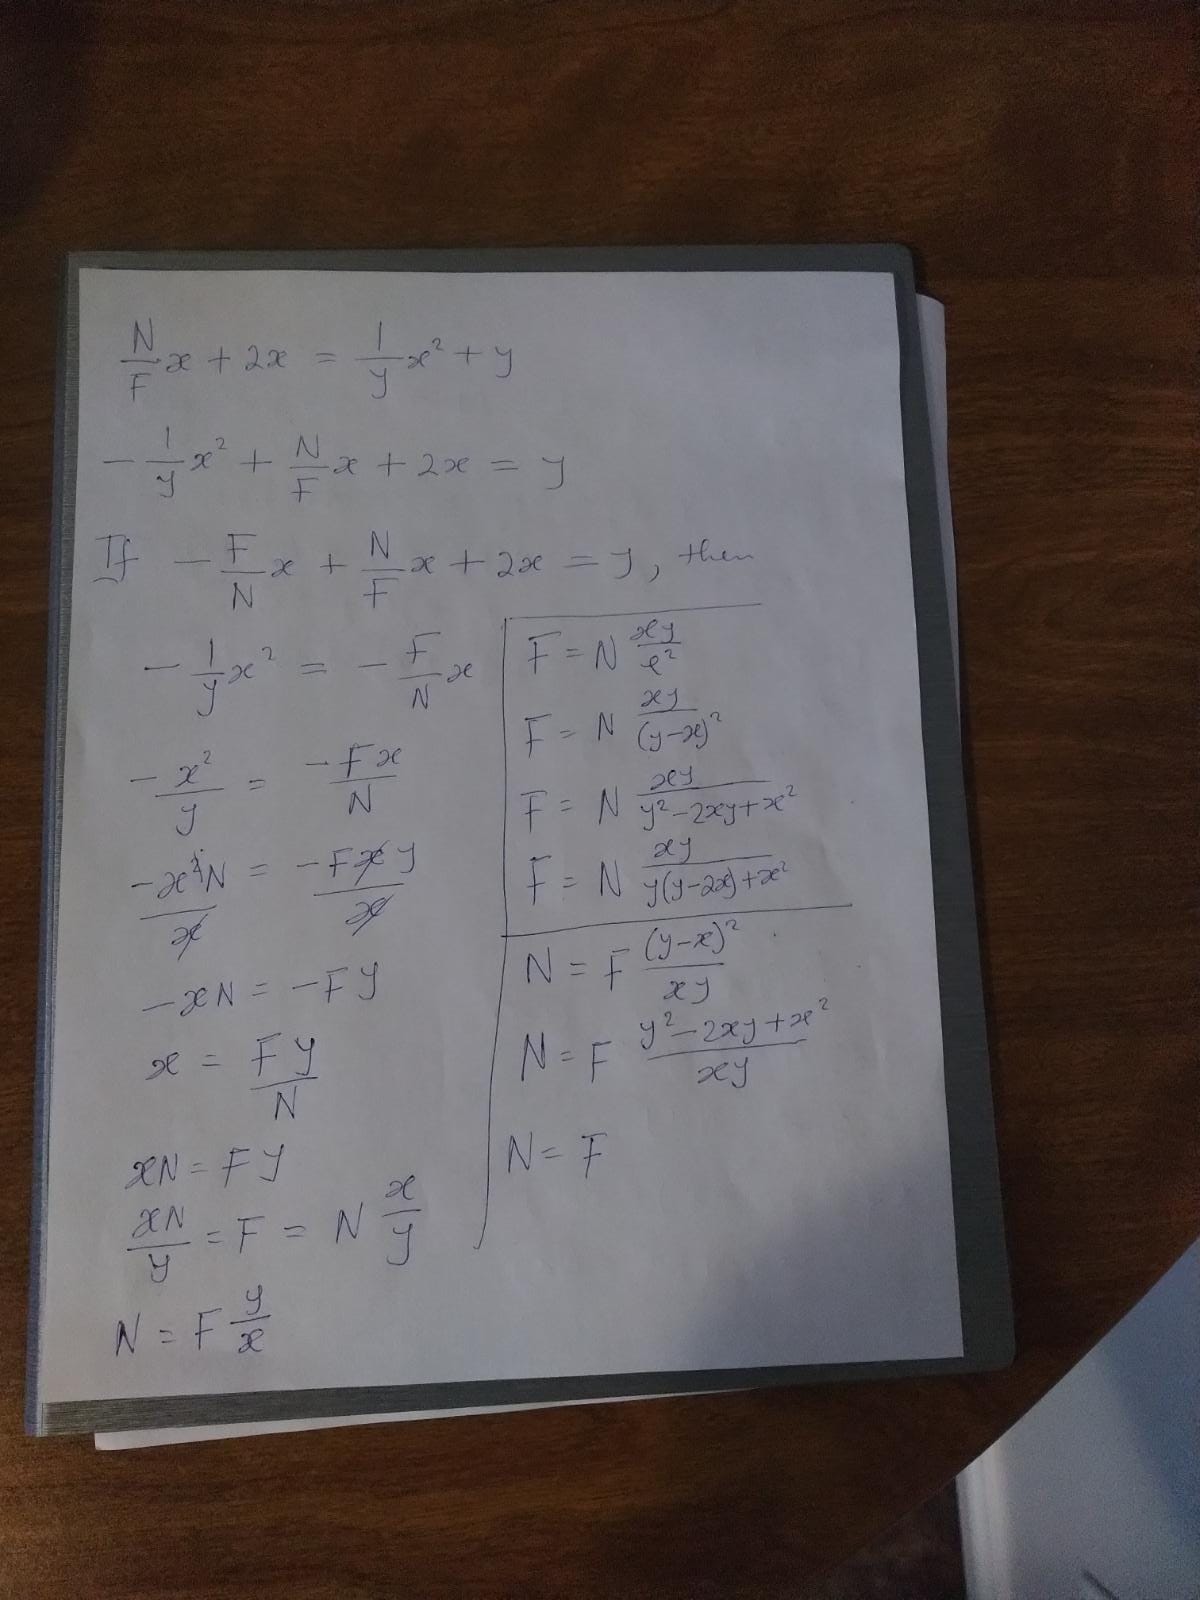 N/F x + 2x = 1/y x² + y
- 1/y x² + N/F x + 2x = y
If - F/N x + N/F x + 2x = y, then
- 1/y x² = - F/N x
- x²/y = -Fx/N
-x²N/x = -Fxy/x
-xN = -Fy
x = Fy/N
xN = Fy
xN/y = F = N x/y
N = F y/x
F = N xy/e²
F = N xy/(y-x)²
F = N xy/y²-2xy+x²
F = N xy/y(y-2x)+x²
N = F (y-x)²/xy
N = F y²-2xy+x²/xy
N = F